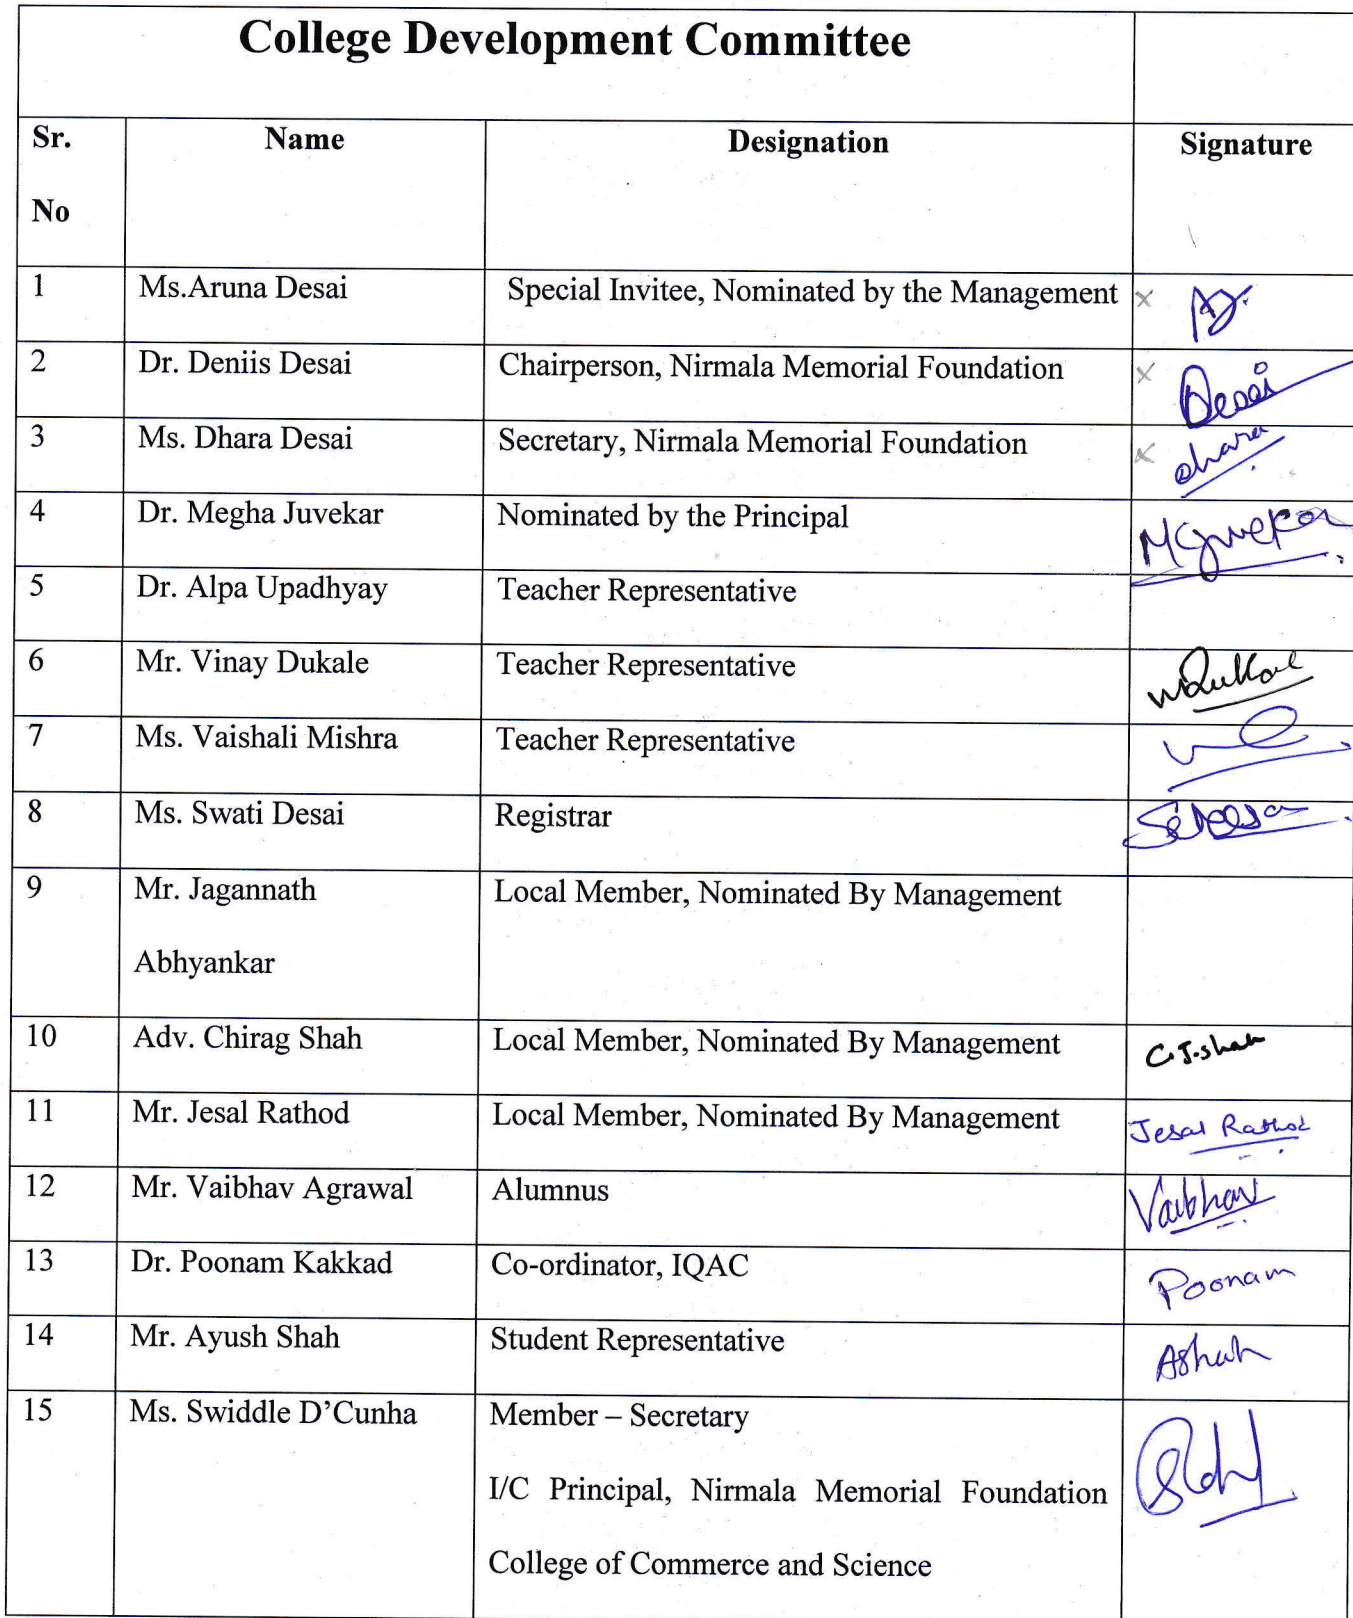 College Development Committee
Sr. No Name Designation Signature
1 Ms.Aruna Desai Special Invitee, Nominated by the Management x
2 Dr. Deniis Desai Chairperson, Nirmala Memorial Foundation x Desai
3 Ms. Dhara Desai Secretary, Nirmala Memorial Foundation x dhara
4 Dr. Megha Juvekar Nominated by the Principal
5 Dr. Alpa Upadhyay Teacher Representative
6 Mr. Vinay Dukale Teacher Representative
7 Ms. Vaishali Mishra Teacher Representative
8 Ms. Swati Desai Registrar
9 Mr. Jagannath Local Member, Nominated By Management
Abhyankar
10 Adv. Chirag Shah Local Member, Nominated By Management C.J.shah
11 Mr. Jesal Rathod Local Member, Nominated By Management Jesal Rathod
12 Mr. Vaibhav Agrawal Alumnus Vaibhav
13 Dr. Poonam Kakkad Co-ordinator, IQAC Poonam
14 Mr. Ayush Shah Student Representative AShah
15 Ms. Swiddle D’Cunha Member – Secretary
I/C Principal, Nirmala Memorial Foundation
College of Commerce and Science